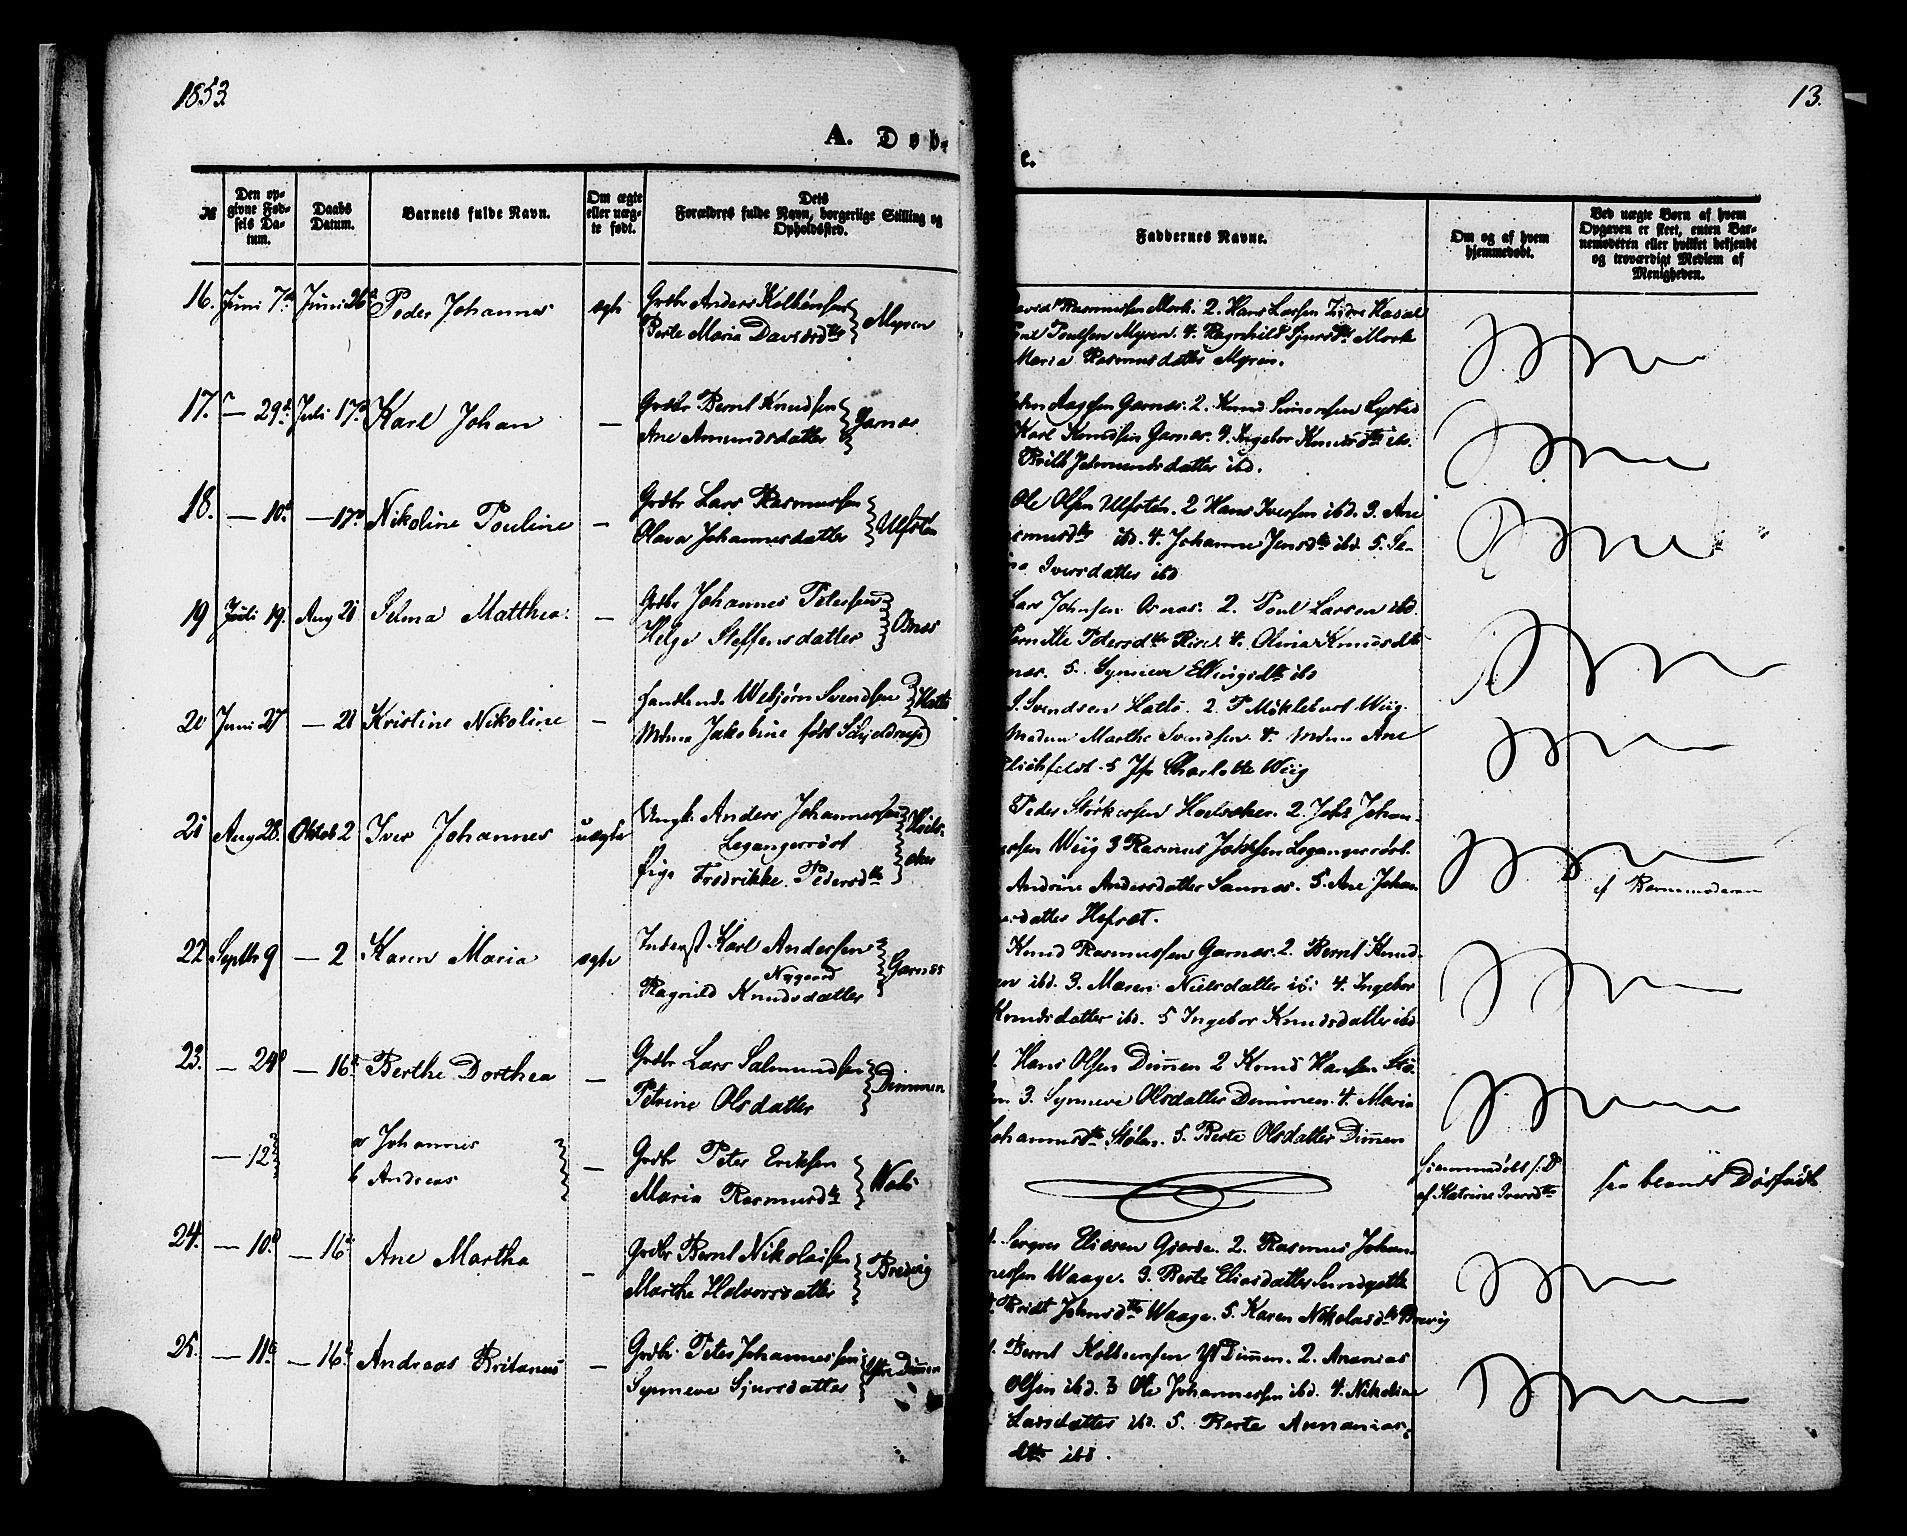 1853.
13.
A. Døb-
e.
№
Den op-
givne Fød-
sels Da-
tum.
Daabs
Datum.
Barnets fulde Navn.
Om ægte
eller uæg-
te født.
Dets
Forældres fulde Navn, borgerlige Stilling og
Opholdssted.
Faddernes Navne.
Om og af hvem
hjemmedøbt.
Ved uægte Børn af hvem
Opgaven er skeet, enten Bar-
nemoderen eller hvilket bekjendt
og troværdigt Medlem af
Menigheden.
16. Juni 7de Juni 26de Peder Johannes ægte Grdbr Anders Kolbénsen
Berte Maria Davidsdtr Myren
David Rasmussen Mork. 2. Hans Larsen
Poul Poulsen Myren. 4. Ragnhild Sjursdtr Mork
Maria Rasmusdatter Myren.
17. — 29de Juli 17de Karl Johan — Grdbr Bernt Knudsen
Ane Amundsdatter Garnæs
Garnæs. 2. Knud Simonsen
Karl Knudsen Garnæs. Ingebor Knudsdtr ibd.
Johnundsdatter ibd.
18. — 10de — 17de Nikoline Pouline — Grdbr Lars Rasmussen
Olava Johannesdatter Ulfsten
Ole Olsen Ulfsten. 2 Hans Iversen ibd. 3. Ane
ibd. 4. Johanne Jensdtr ibd. 5. Se-
Iversdatter ibd
19 Juli 19. Aug 21 Selma Matthea. — Grdbr Johannes Petersen
Helge Steffensdatter Osnæs
Lars Johnsen Osnæs. 2. Poul Larsen ibd.
Pedersdtr 4. Olivia Knudsdtr
5. Synneve Ellingsdtr ibd
20 Juni 27 — 21 Kristine Nikoline — Handlende Webjørn Svendsen
Mdme Jakobine født Schjeldrup Hatlø
S. Svendsen Hatlø. 2. P Møklebust Wiig.
Madam Marthe Svendsen 4. Mdme Ane
5 Jfr Charlotte Wiig
21 Aug 28. Oktob 2 Iver Johannes uægte Ungk. Anders Johannessen
Legangerrøst
Pige Fredrikke Pedersdtr
Peder Størkersen 2. Johs Johan-
Wiig 3 Rasmus Legangerrøst.
Andrine Andersdatter Sannæs. 5. Ane Johan
Hessæt.
af Barnemoderen
22 Septbr 9 — 2 Karen Maria ægte Inderst. Karl Andersen
Nygaard
Ragnild Knudsdatter Garnæs
Knud Rasmussen Garnæs. 2. Bernt Knud-
ibd. 3. Maren Nielsdatter ibd 4. Ingebor
Knudsdatter ibd. 5 Ingebor Knudsdatter ibd
23. — 24de — 16de Berthe Dorthea — Grdbr Lars Salmundsen
Petrine Olsdatter Dimmen
Hans Olsen Dimmen 2 Knud Hansen Stø-
3. Synneve Olsdatter Dimmen. 4. Maria
Johannesdtr Stølen. 5. Berte Olsdatter Dimmen
— 12 a Johannes
b Andreas — Grdbr Peter Eriksen
Maria Rasmusdtr
hjemmedøbt
af Katrine Iversdtr
see blandt Dødfødte
24. — 10de — 16de Ane Martha — Grdbr Bernt Nikolaisen
Marthe Halvorsdatter Brevig
Eliasen Gjerde. 2. Rasmus Johan-
nessen Waage. 3. Berte Eliasdatter
Johnsdtr Waage. 5. Karen Nikolaisdtr Brevig
25. — 11te — 16de Andreas Britanus — Grdbr Peter Johannessen
Synneve Sjursdatter Ytre Dimmen
Bernt Yt Dimmen. 2. Ananias
Olsen ibd. 3 Ole Johannessen ibd. 4. Nikoline
Larsdatter ibd. 5. Berte Annanias-
dtr ibd.